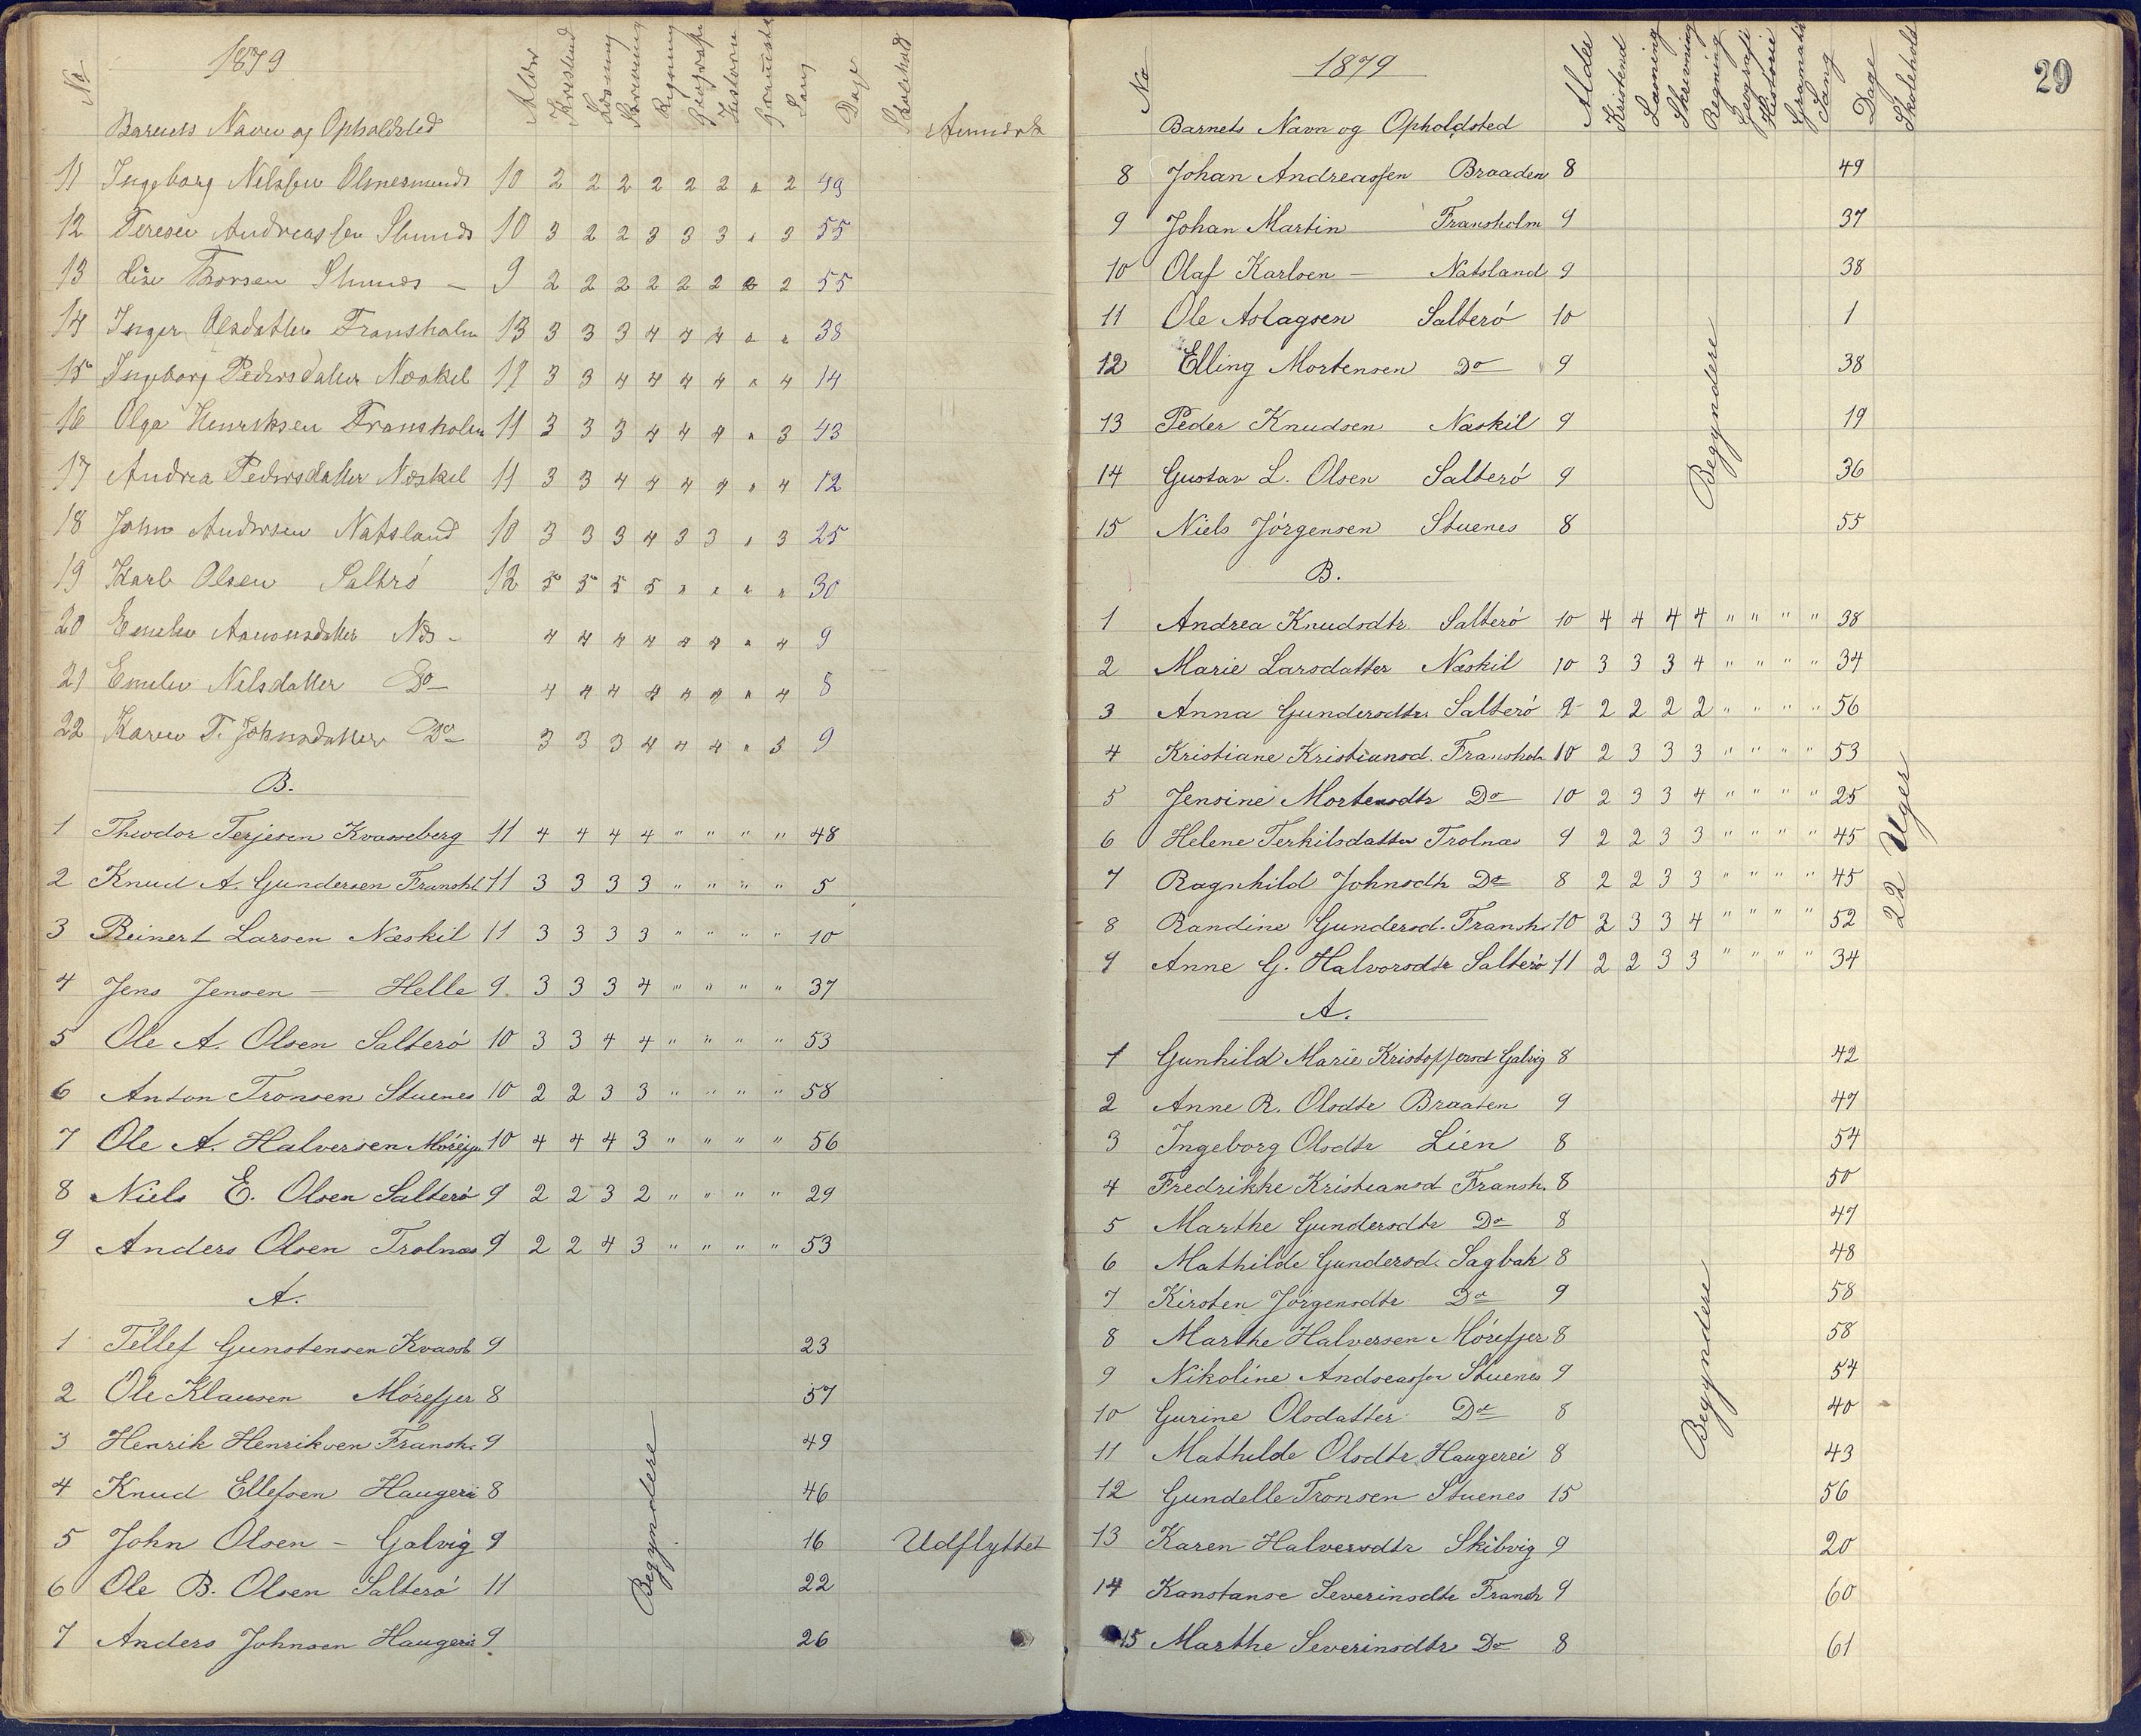 1879
No Barnets Navn og Opholdsted Alder Kristend Læsning Skrivning Regning Geografi Historie Gramatik Sang Dage Skolehold Anmærk
11 Ingeborg Nilssen 10 2 2 2 2 2 2 " 2 49
12 Terese Andreassen Stunds 10 3 2 2 3 3 3 " 3 55
13 Lise Thorsen Stunes — 9 2 2 2 2 2 2 2 2 55
14 Inger Olsdatter Fransholm 13 3 3 3 4 4 4 " " 38
15 Ingeborg Pedersdatter Næskil 12 3 3 4 4 4 4 " 4 14
16 Olga Henriksen Fransholm 11 3 3 3 4 4 4 " 3 43
17 Andrea Pedersdatter Næskil 11 3 3 4 4 4 4 " 4 12
18 John Andersen Natsland 10 3 3 3 4 3 3 " 3 25
19 Karl Olsen Saltrö 12 5 5 5 5 " " " " 30
20 Emelie Aanonsdatter Næs - 4 4 4 4 4 4 " 4 9
21 Emelie Nilsdatter Do 4 4 4 4 4 4 " 4 8
22 Karen T. Johnsdatter Do 3 3 3 4 4 4 " 3 9
B.
1 Theodor Terjesen Kvasseberg 11 4 4 4 4 " " " " 48
2 Knud A. Gundersen Franshl 11 3 3 3 3 " " " " 5
3 Reinert Larsen Næskil 11 3 3 3 3 " " " " 10
4 Jens Jensen — Helle 9 3 3 3 4 " " " " 37
5 Ole A. Olsen Salterö 10 3 3 4 4 " " " " 53
6 Anton Tronsen Stuenes 10 2 2 3 3 " " " " 58
7 Ole A. Halversen Mörefjer 10 4 4 4 3 " " " " 56
8 Niels E. Olsen Salterö 9 2 2 3 2 " " " " 29
9 Anders Olsen Trolnæs 9 2 2 4 3 " " " " 53
A.
1 Tellef Gunstensen Kvassb 9 23
2 Ole Klausen Mörefjer 8 57
3 Henrik Henriksen Fransh. 9 49
4 Knud Ellefsen Haugerei 8 46
5 John Olsen — Galvig 9 16 Udflyttet
6 Ole B. Olsen Salterö 11 22
7 Anders Johnsen Haugerei 9 26
Begyndere
29
1879
No Barnets Navn og Opholdsted Alder Kristend Læsning Skrivning Regning Geografi Historie Gramatik Sang Dage Skolehold
8 Johan Andreassen Braaden 8 49
9 Johan Martin Fransholm 9 37
10 Olaf Karlsen — Natsland 9 38
11 Ole Aslagsen Salterö 10 1
12 Elling Mortensen Do 9 38
13 Peder Knudsen Næskil 9 19
14 Gustav L. Olsen Salterö 9 36
15 Niels Jörgensen Stuenes 8 55
Begyndere
B.
1 Andrea Knudsdtr. Salterö 10 4 4 4 4 " " " " 38
2 Marie Larsdatter Næskil 10 3 3 3 4 " " " " 34
3 Anna Gundersdtr. Salterö 9 2 2 2 2 " " " " 56
4 Kristiane Kristiansd. Fransholm 10 2 3 3 3 " " " " 53
5 Jensine Mortensdtr Do 10 2 3 3 4 " " " " 25
6 Helene Terkilsdatter Trolnæs 9 2 2 3 3 " " " " 45
7 Ragnhild Johnsdtr Do 8 2 2 3 3 " " " " 45
8 Randine Gundersd. Fransh. 10 2 3 3 4 " " " " 52
9 Anne G. Halvorsdtr Salterö 11 2 2 3 3 " " " " 34
22 Uger
A.
1 Gunhild Marie Kristoffersd Galvig 8 42
2 Anne R. Olsdtr Braaten 9 47
3 Ingeborg Olsdtr Lien 8 54
4 Fredrikke Kristiansd Fransh. 8 50
5 Marthe Gundersdtr Do 8 47
6 Mathilde Gundersd. Sagbak 8 48
7 Kirsten Jörgensdtr Do 9 58
8 Marthe Halversen Mörefjer 8 58
9 Nikoline Andreassen Stuenes 9 54
10 Gurine Olsdatter Do 8 40
11 Mathilde Olsdtr. Haugerei 8 43
12 Gundelle Tronsen Stuenes 15 56
13 Karen Halversdtr Skibvig 9 20
14 Konstanse Severinsdtr Fransh 9 60
15 Marthe Severinsdtr Do 8 61
Begyndere